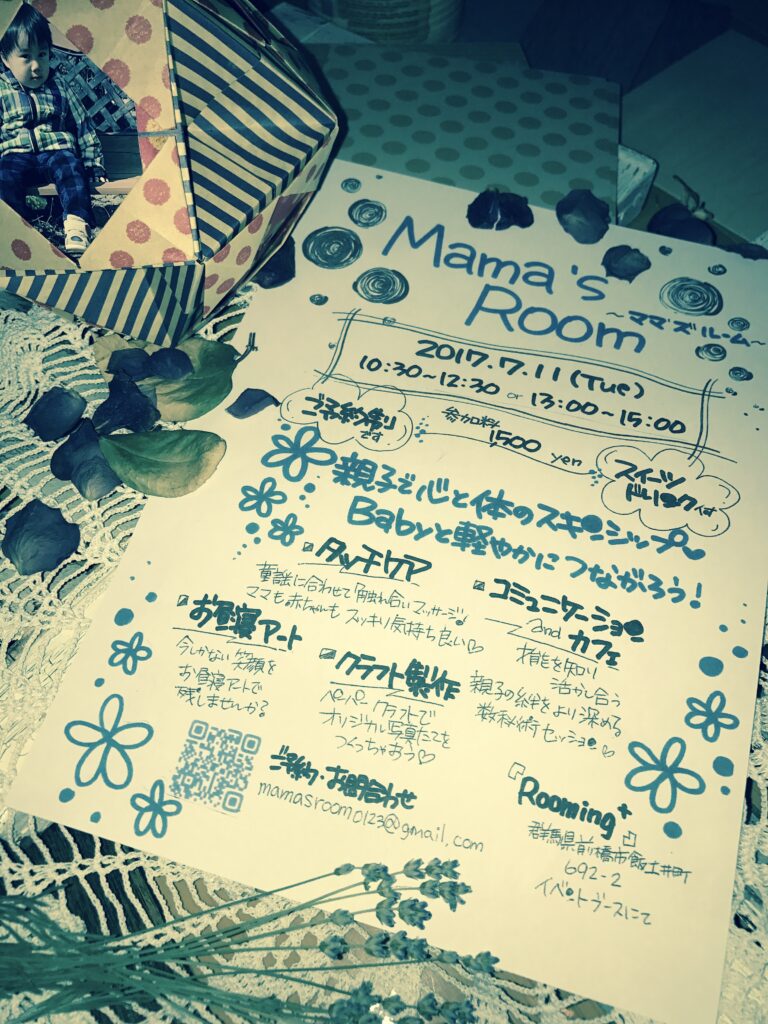 Mama's
Room
~ママ'ズルーム~
2017.7.11 (Tue)
10:30~12:30 or 13:00~15:00
ご予約制り
です
参加料
1500 yen
スイーツ
ドリンク付
親子で心と体のスキンシップ
Babyと軽やかにつながろう!
タッチケア
童謡に合わせて「触れ合いマッサージ」
ママも赤ちゃんもスッキリ気持ち良い♡
コミュニケーション
and カフェ
才能を知り
活かし合う
親子の絆をより深める
数秘術セッション♡
お昼寝アート
今しかない笑顔を
お昼寝アートで
残しませんか?
クラフト製作
ペーパークラフトで
オリジナル写真たてを
つくっちゃおう♡
ご予約・お問合わせ
mamasroom0123@gmail.com
『Rooming+』
群馬県前橋市飯土井町
692-2
イベントブースにて